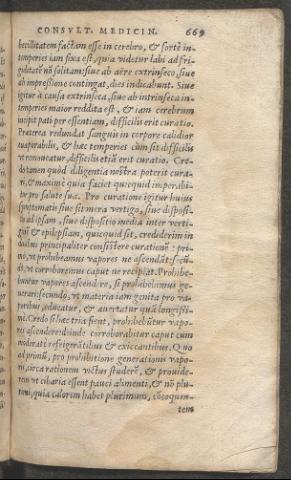 CONSVLT. MEDICIN. 669
becillitatem factam esse in cerebro, & fortè in-
temperies iam fixa est, quia videtur labi ad fri-
giditatẽ nõ solitam: siue ab aëre extrinseco, siue
ab impressione contingat, dies indicabunt. Siue
igitur à causa extrinseca, siue ab intrinseca in-
temperies maior reddita est, & iam cerebrum
incipit pati per essentiam, difficilis erit curatio.
Præterea redundat sanguis in corpore calidior
euaporabilis, & hæc temperies cùm sit difficilis
vt remoueatur, difficilis etiã erit curatio. Cre-
do tamen quòd diligentia nostra poterit cura-
ri, & maximè quia faciet quicquid imperabi-
tur pro salute sua. Pro curatione igitur huius
symptomatis siue sit mera vertigo, siue disposi-
tio ad ipsam, siue dispositio media inter verti-
gine & epilepsiam, quicquid sit, crediderim in
duobus principaliter consistere curationẽ: pri-
mò, vt prohibeamus vapores ne ascendãt: secũ-
dò, vt corroboremus caput ne recipiat. Prohibe-
buntur vapores ascendere, si prohibebimus ge-
nerari: secundo, vt materia iam genita pro va-
poribus, educatur, & auertatur quã longissi-
mè. Credo si hæc tria fient, prohibebũtur vapo-
res ascendere: deinde corroborabitur caput cum
moderatis refrigerãtibus & exiccantibus. Quo
ad primũ, pro prohibitione generationis vapo-
rũ, circa rationem victus studerẽ, & prouide-
rem vt cibaria essent pauci alimenti, & nõ plu-
rimi, quia calorem habet plurimum, cõcoquen-
tem